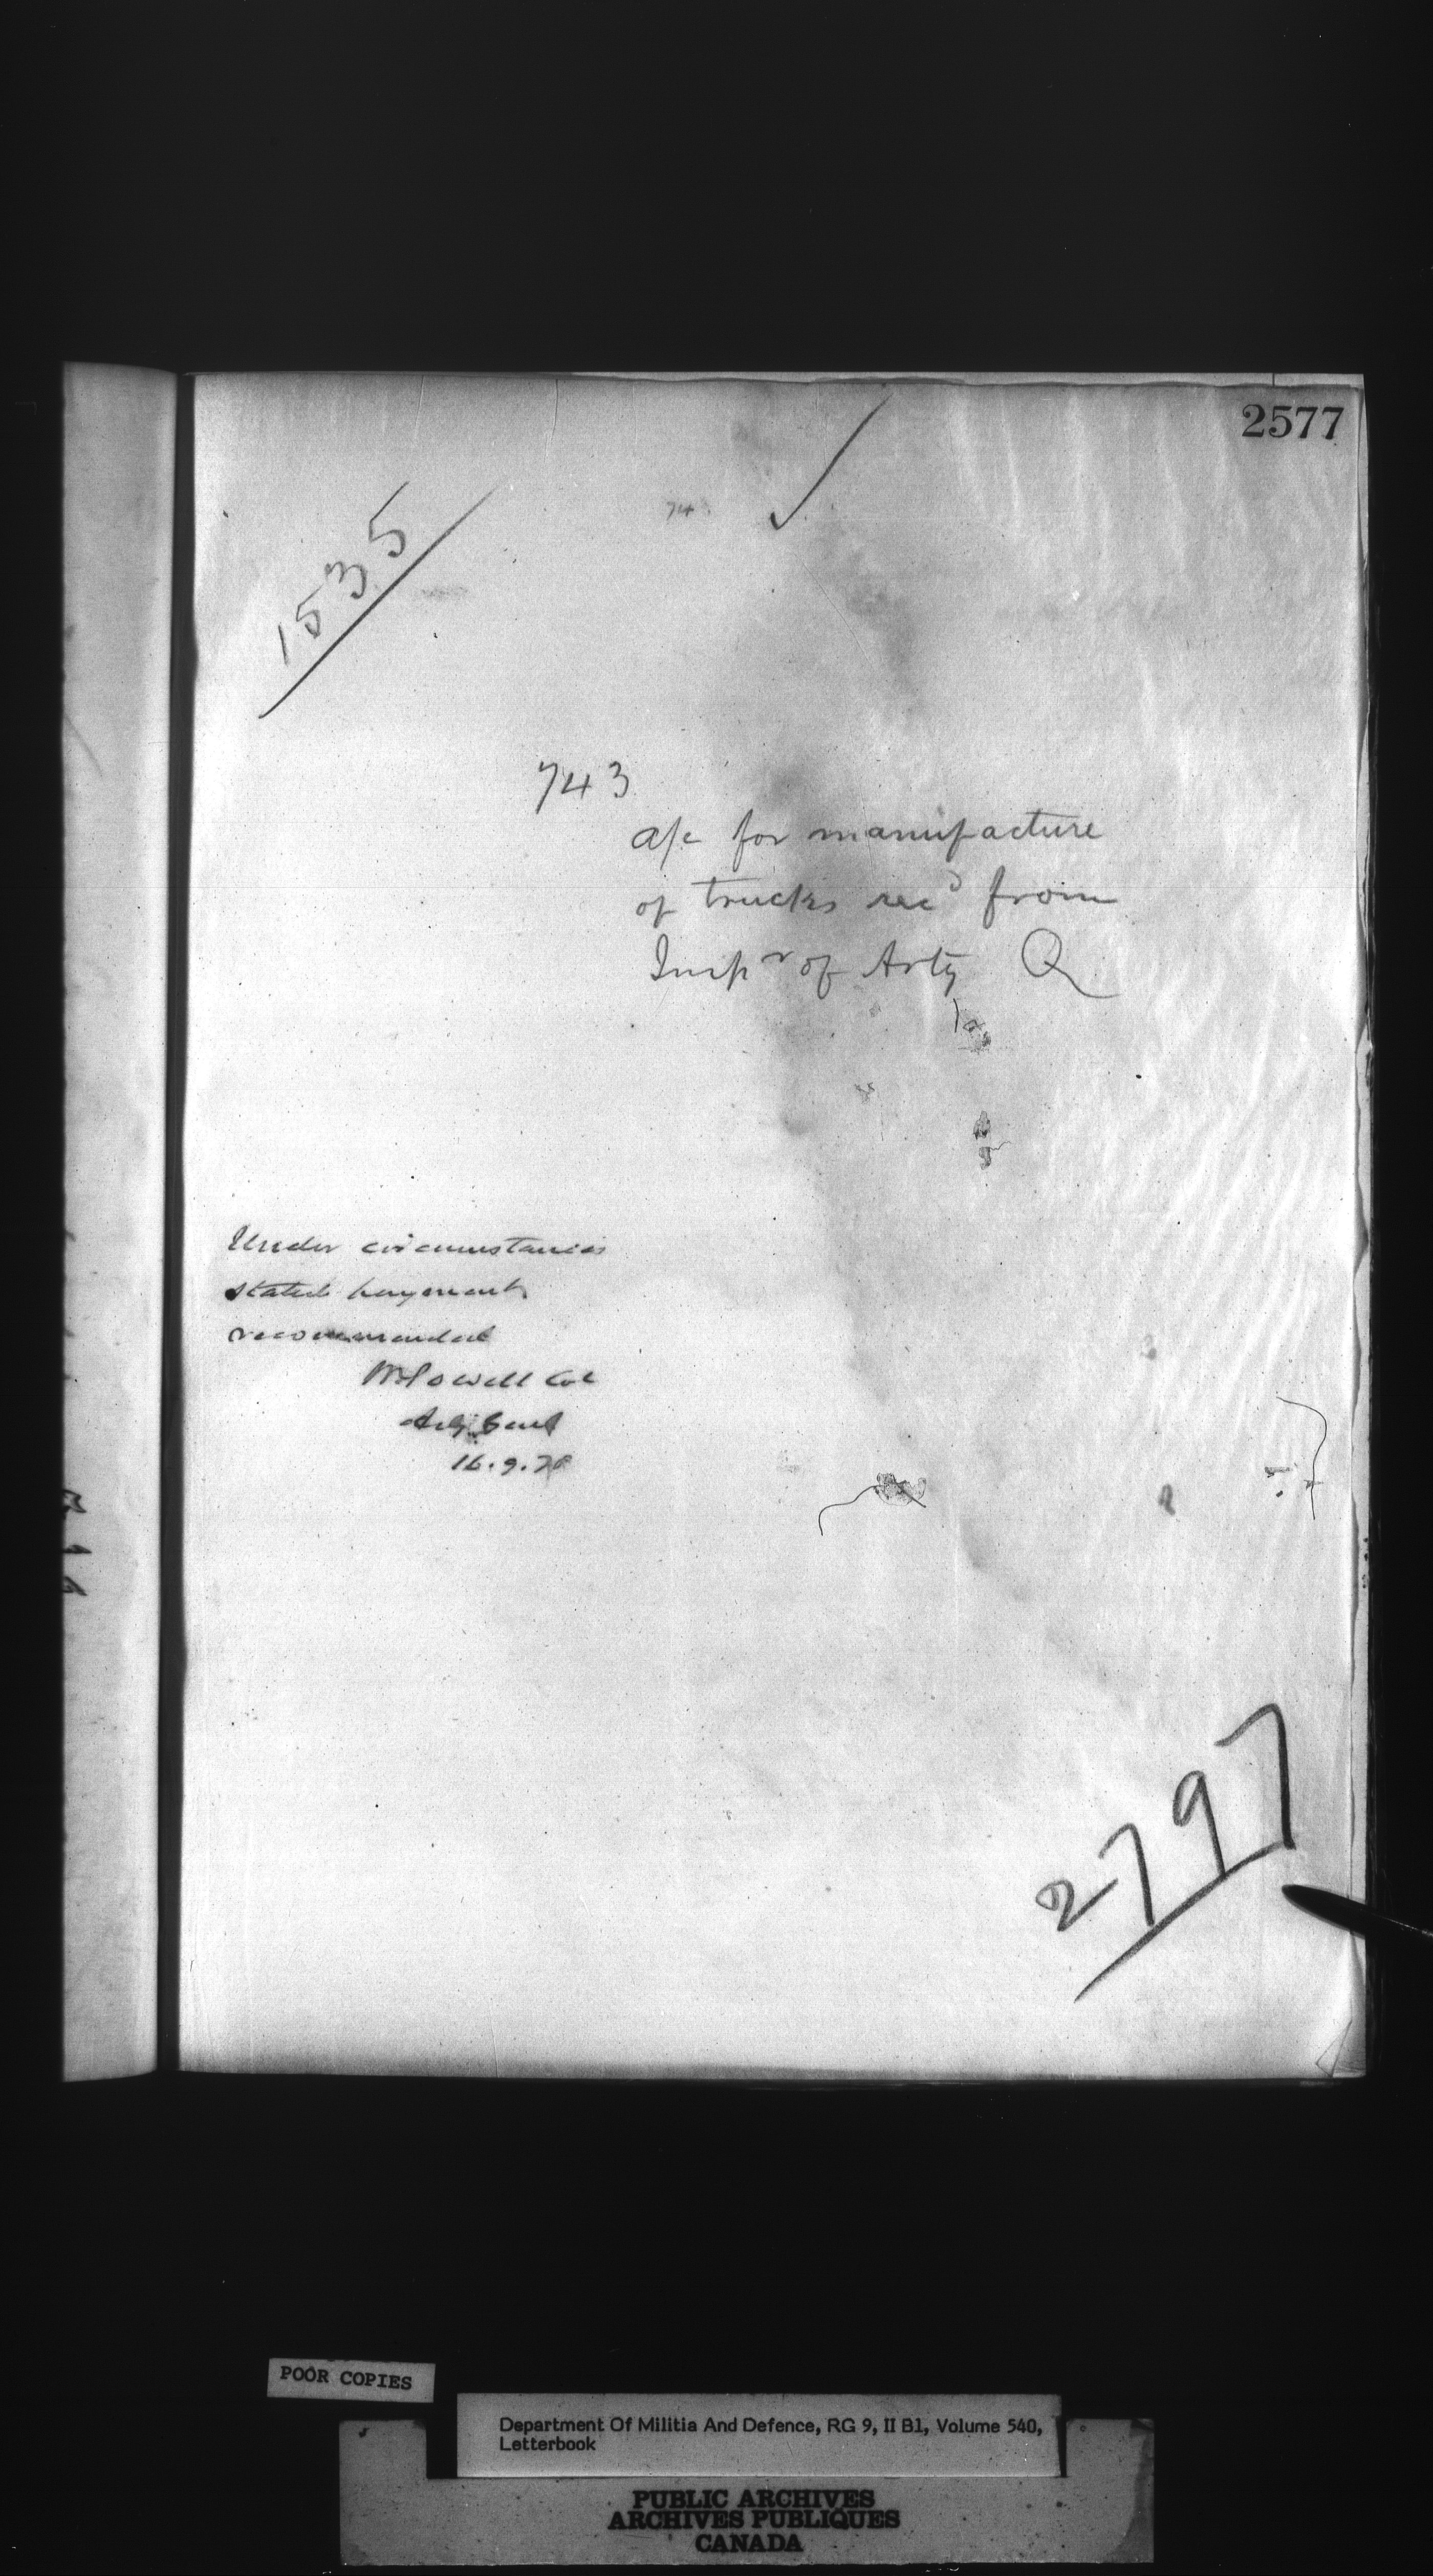 2577
1535
74
743
a/c for manufacture
of trucks recd from
Inspr of Arty Q
Under circumstances
stated payment
recommended
W Powell Col
Adj. Genl
16.9.78
2797
POOR COPIES
Department Of Militia And Defence, RG 9, II B1, Volume 540,
Letterbook
PUBLIC ARCHIVES
ARCHIVES PUBLIQUES
CANADA